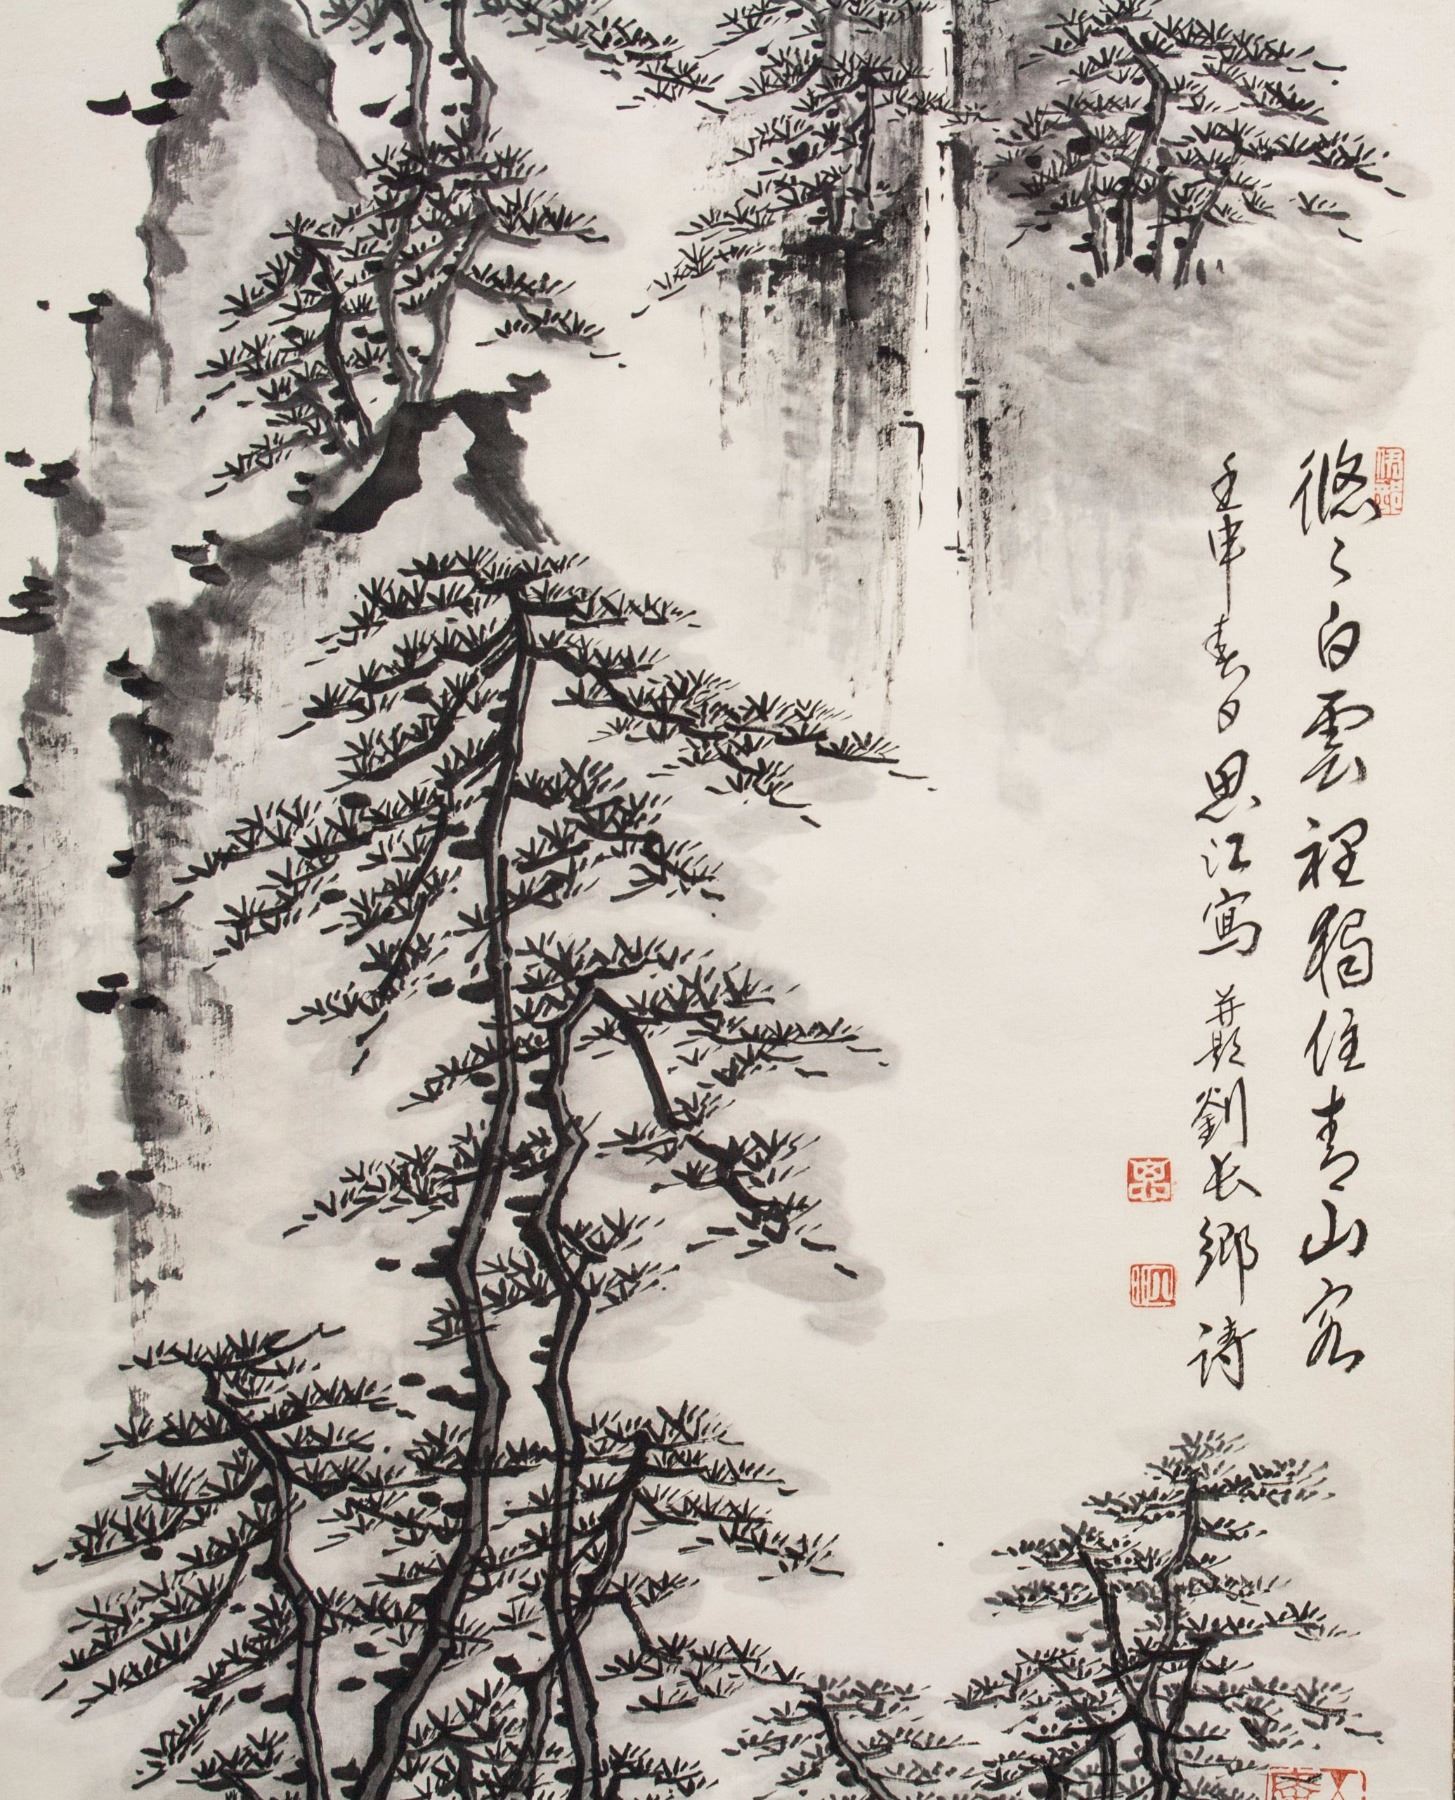 悠〻白雲裡獨住青山客
壬申春日思江寫并題劉長卿詩